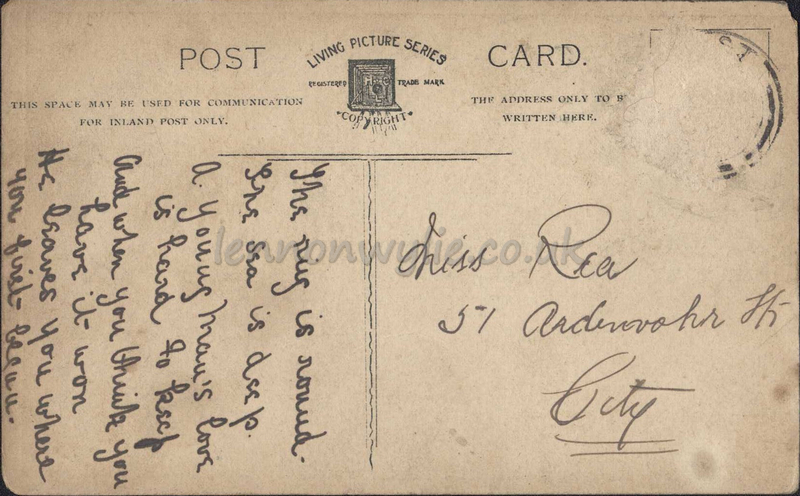 POST
CARD.
LIVING PICTURE SERIES
REGISTERED TRADE MARK
COPYRIGHT
THIS SPACE MAY BE USED FOR COMMUNICATION
FOR INLAND POST ONLY.
THE ADDRESS ONLY TO B
WRITTEN HERE.
The ring is round.
The sea is deep.
A. young man's love
is hard to keep
And when you think you
have it won
He leaves you where
you first began.
Miss Rea
51 Ardenvohr St
City
lennonwylie.co.uk